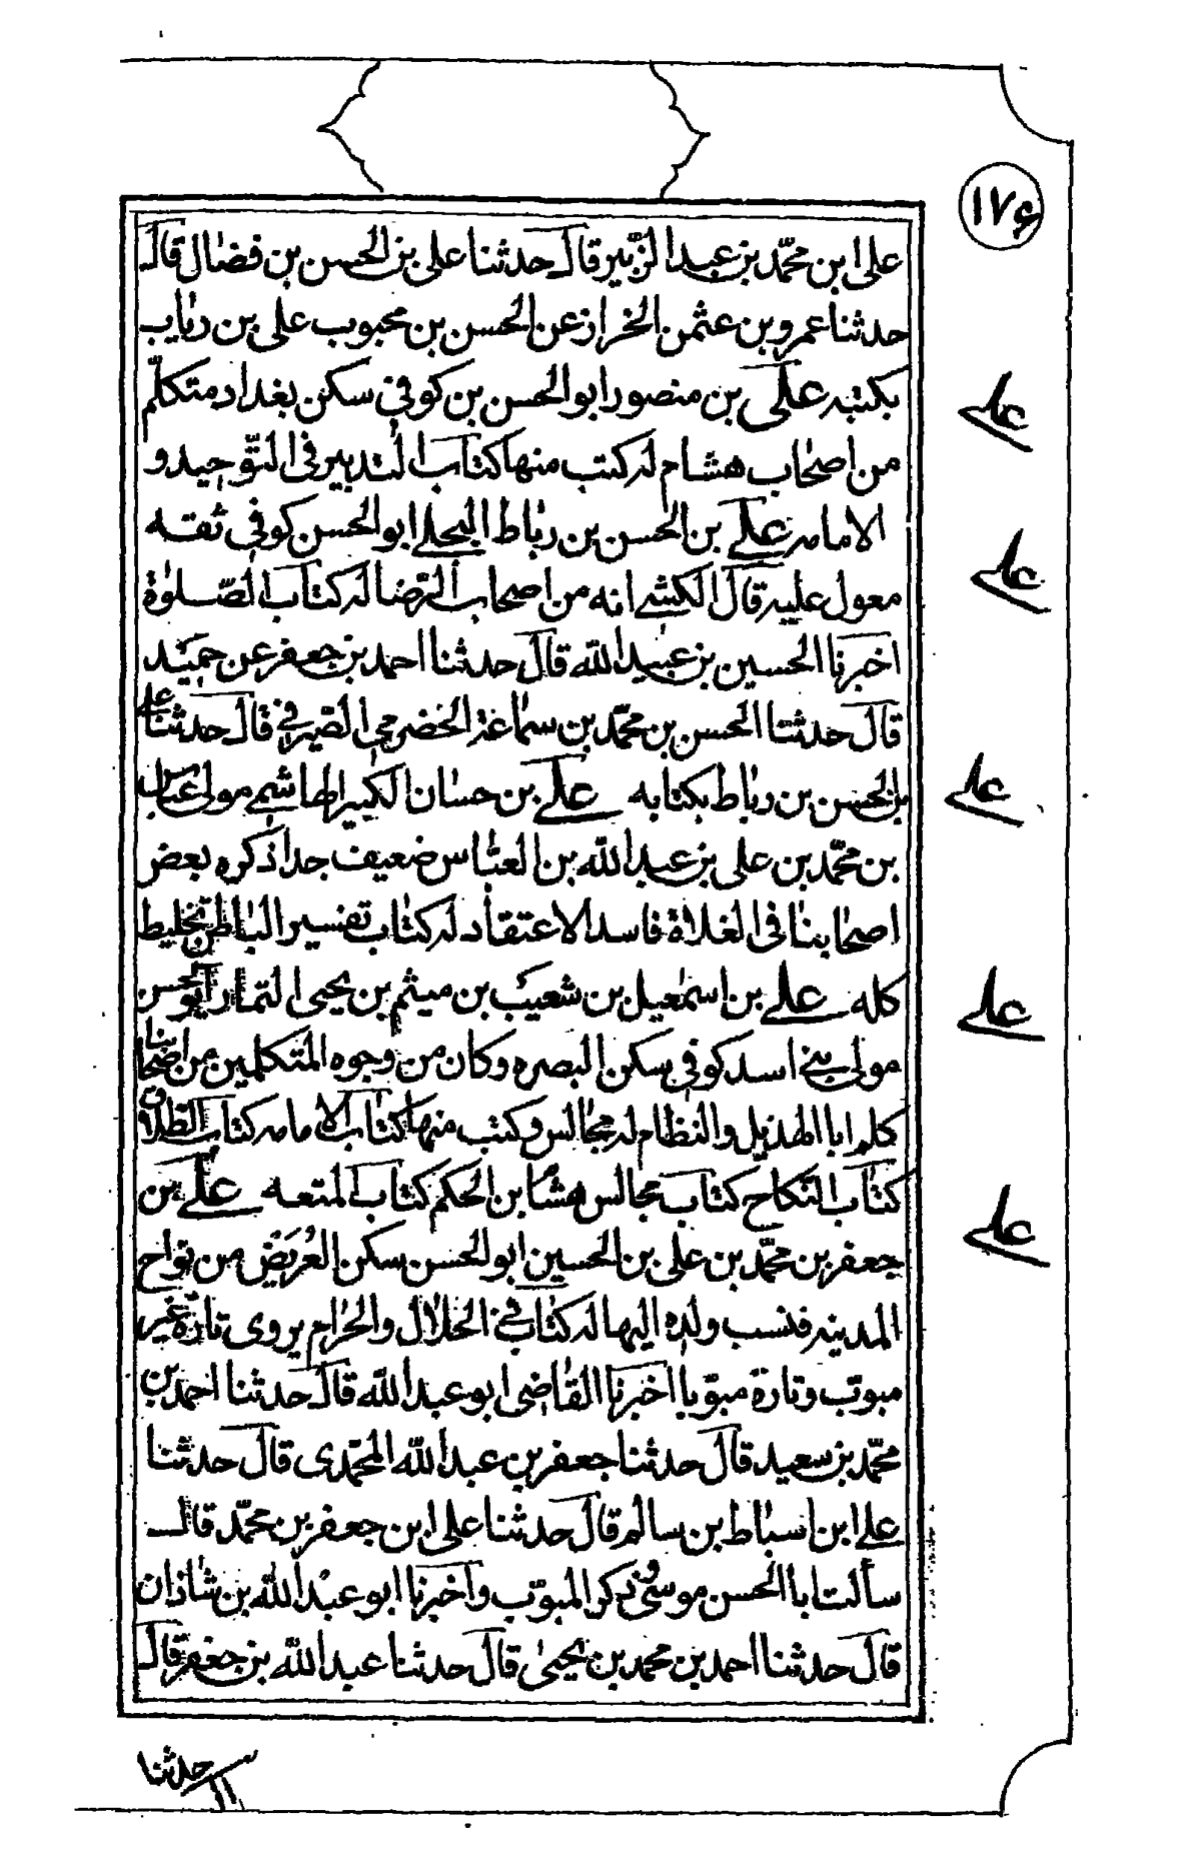 ١٧۶
على ابن محمّد بن عبد الزّبير قال حدثنا على بن الحسن بن فضال قال
حدثنا عمرو بن عثمن الخراز عن الحسن بن محبوب على بن رياب
بكتبه على بن منصور ابو الحسن بن كوفى سكن بغداد متكلّم
على
من اصحاب هشام له كتب منها كتاب التدبير فى التّوحيد و
الامامه على بن الحسن بن رباط البجلى ابو الحسن كوفى ثقه
على
معول عليه قال الكشى انه من اصحاب الرّضا له كتاب الصّلوٰة
اخبرنا الحسين بن عبيد اللّه قال حدثنا احمد بن جعفر عن حميد
قال حدثنا الحسن بن محمّد بن سماعة الخضرمى الصّيرفى قال حدثنا على
بن الحسن بن رباط بكتابه على بن حسان الكبير الهاشمى مولى عباس
على
بن محمّد بن على بن عبد اللّه بن العبّاس ضعيف جدا ذكره بعض
اصحابنا فى الغلاة فاسد الاعتقاد له كتاب تفسير الباطن تخليط
كله على بن اسمعيل بن شعيب بن ميثم بن يحيى التمار ابو الحسن
على
مولى بنى اسد كوفى سكن البصره وكان من وجوه المتكلمين من اصحابنا
كلم ابا الهذيل والنظام له مجالس وكتب منها كتاب الامامه كتاب الطلاق
كتاب النكاح كتاب مجالس هشام بن الحكم كتاب المتعه على بن
على
جعفر بن محمّد بن على بن الحسين ابو الحسن سكن العُرَيض من نواحى
المدينه فنسب ولده اليها له كتاب فى الحلال والحرام يروى تارة غير
مبوّب وتارة مبوّبا اخبرنا القاضى ابو عبد اللّه قال حدثنا احمد بن
محمّد بن سعيد قال حدثنا جعفر بن عبد اللّه المحمّدى قال حدثنا
على ابن اسباط بن سالم قال حدثنا على ابن جعفر بن محمّد قال
سألت ابا الحسن موسى وذكر المبوّب واخبرنا ابو عبد اللّه بن شاذان
قال حدثنا احمد بن محمد بن يحيىٰ قال حدثنا عبد اللّه بن جعفر قال
حدثنا